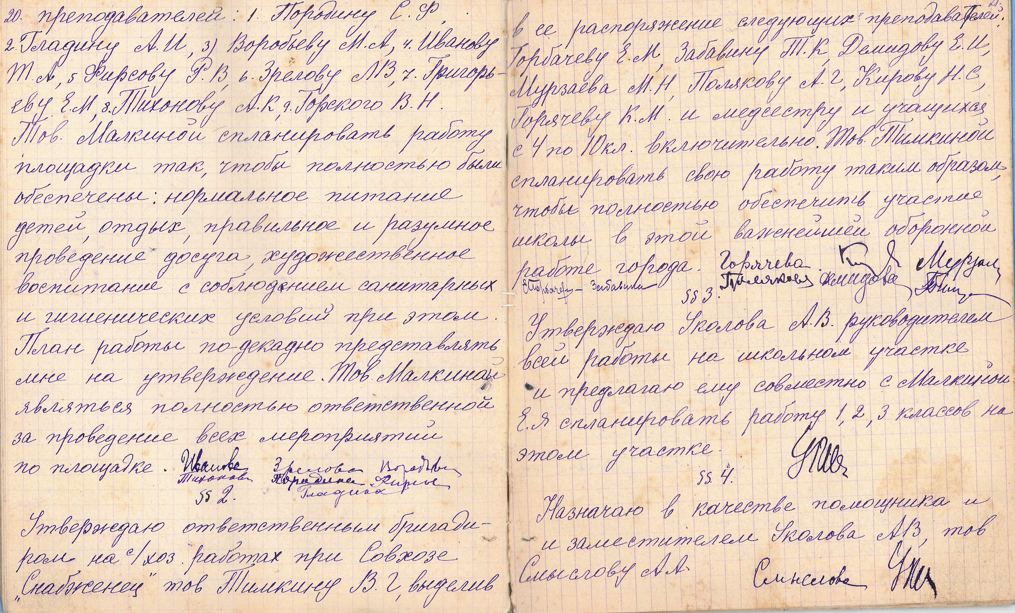 20. преподавателей: 1. Породину С.Ф,
2 Гладину А.И, 3) Воробьеву М.А, 4. Иванову
Т.А, 5 Фирсову Р.В, 6. Зрелову Л.В, 7. Григорь-
еву Е.М, 8. Тихонову А.К, 9. Горского В.Н.
Тов. Малкиной спланировать работу
площадки так, чтобы полностью были
обеспечены: нормальное питание
детей, отдых, правильное и разумное
проведение досуга, художественное
воспитание с соблюдением санитарных
и гигиенических условий при этом.
План работы по-декадно представлять
мне на утверждение. Тов Малкиной
являться полностью ответственной
за проведение всех мероприятий
по площадке. Иванова Зрелова Воробьева
Тихонова Породина Фирсо
Гладина
§§ 2.
Утверждаю ответственным бригади-
ром на с/хоз. работах при Совхозе
"Снабженец" тов Тимкину В.Г, выделив
в ее распоряжение следующих преподавателей:
Горбачеву Е.М, Забавину Т.К, Демидову Е.И,
Мурзаева М.Н, Полякову А.Г, Кирову Н.С,
Горячеву К.М. и медсестру и учащихся
с 4 по 10 кл. включительно. Тов. Тимкиной
спланировать свою работу таким образом,
чтобы полностью обеспечить участие
школы в этой важнейшей оборонной
работе города. Горячева
Забавина Полякова Демидова
§§ 3.
Утверждаю Уколова А.В. руководителем
всей работы на школьном участке
и предлагаю ему совместно с Малкиной
Е.Я спланировать работу 1, 2, 3 классов на
этом участке.
§§ 4.
Назначаю в качестве помощника и
и заместителем Уколова АВ, тов
Смыслову А.А.
Смыслова